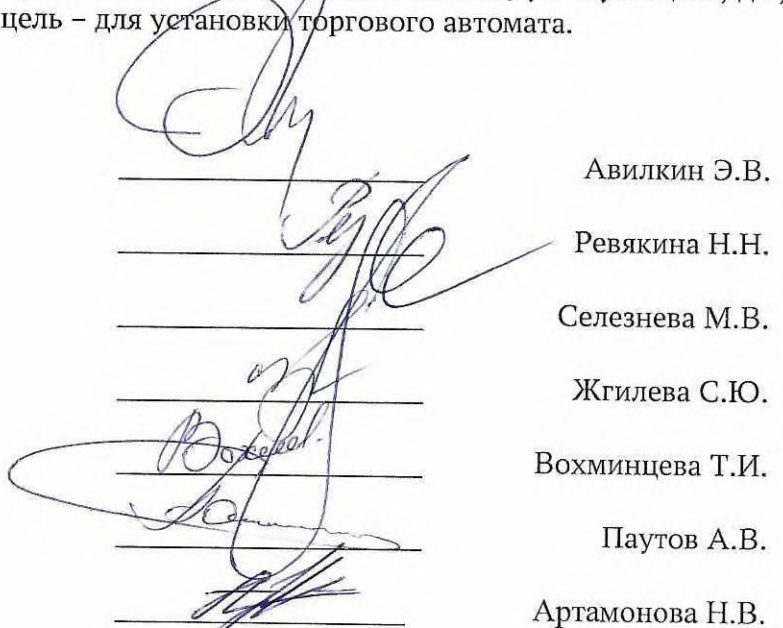 цель – для установки торгового автомата.
Авилкин Э.В.
Ревякина Н.Н.
Селезнева М.В.
Жгилева С.Ю.
Вохминцева Т.И.
Паутов А.В.
Артамонова Н.В.